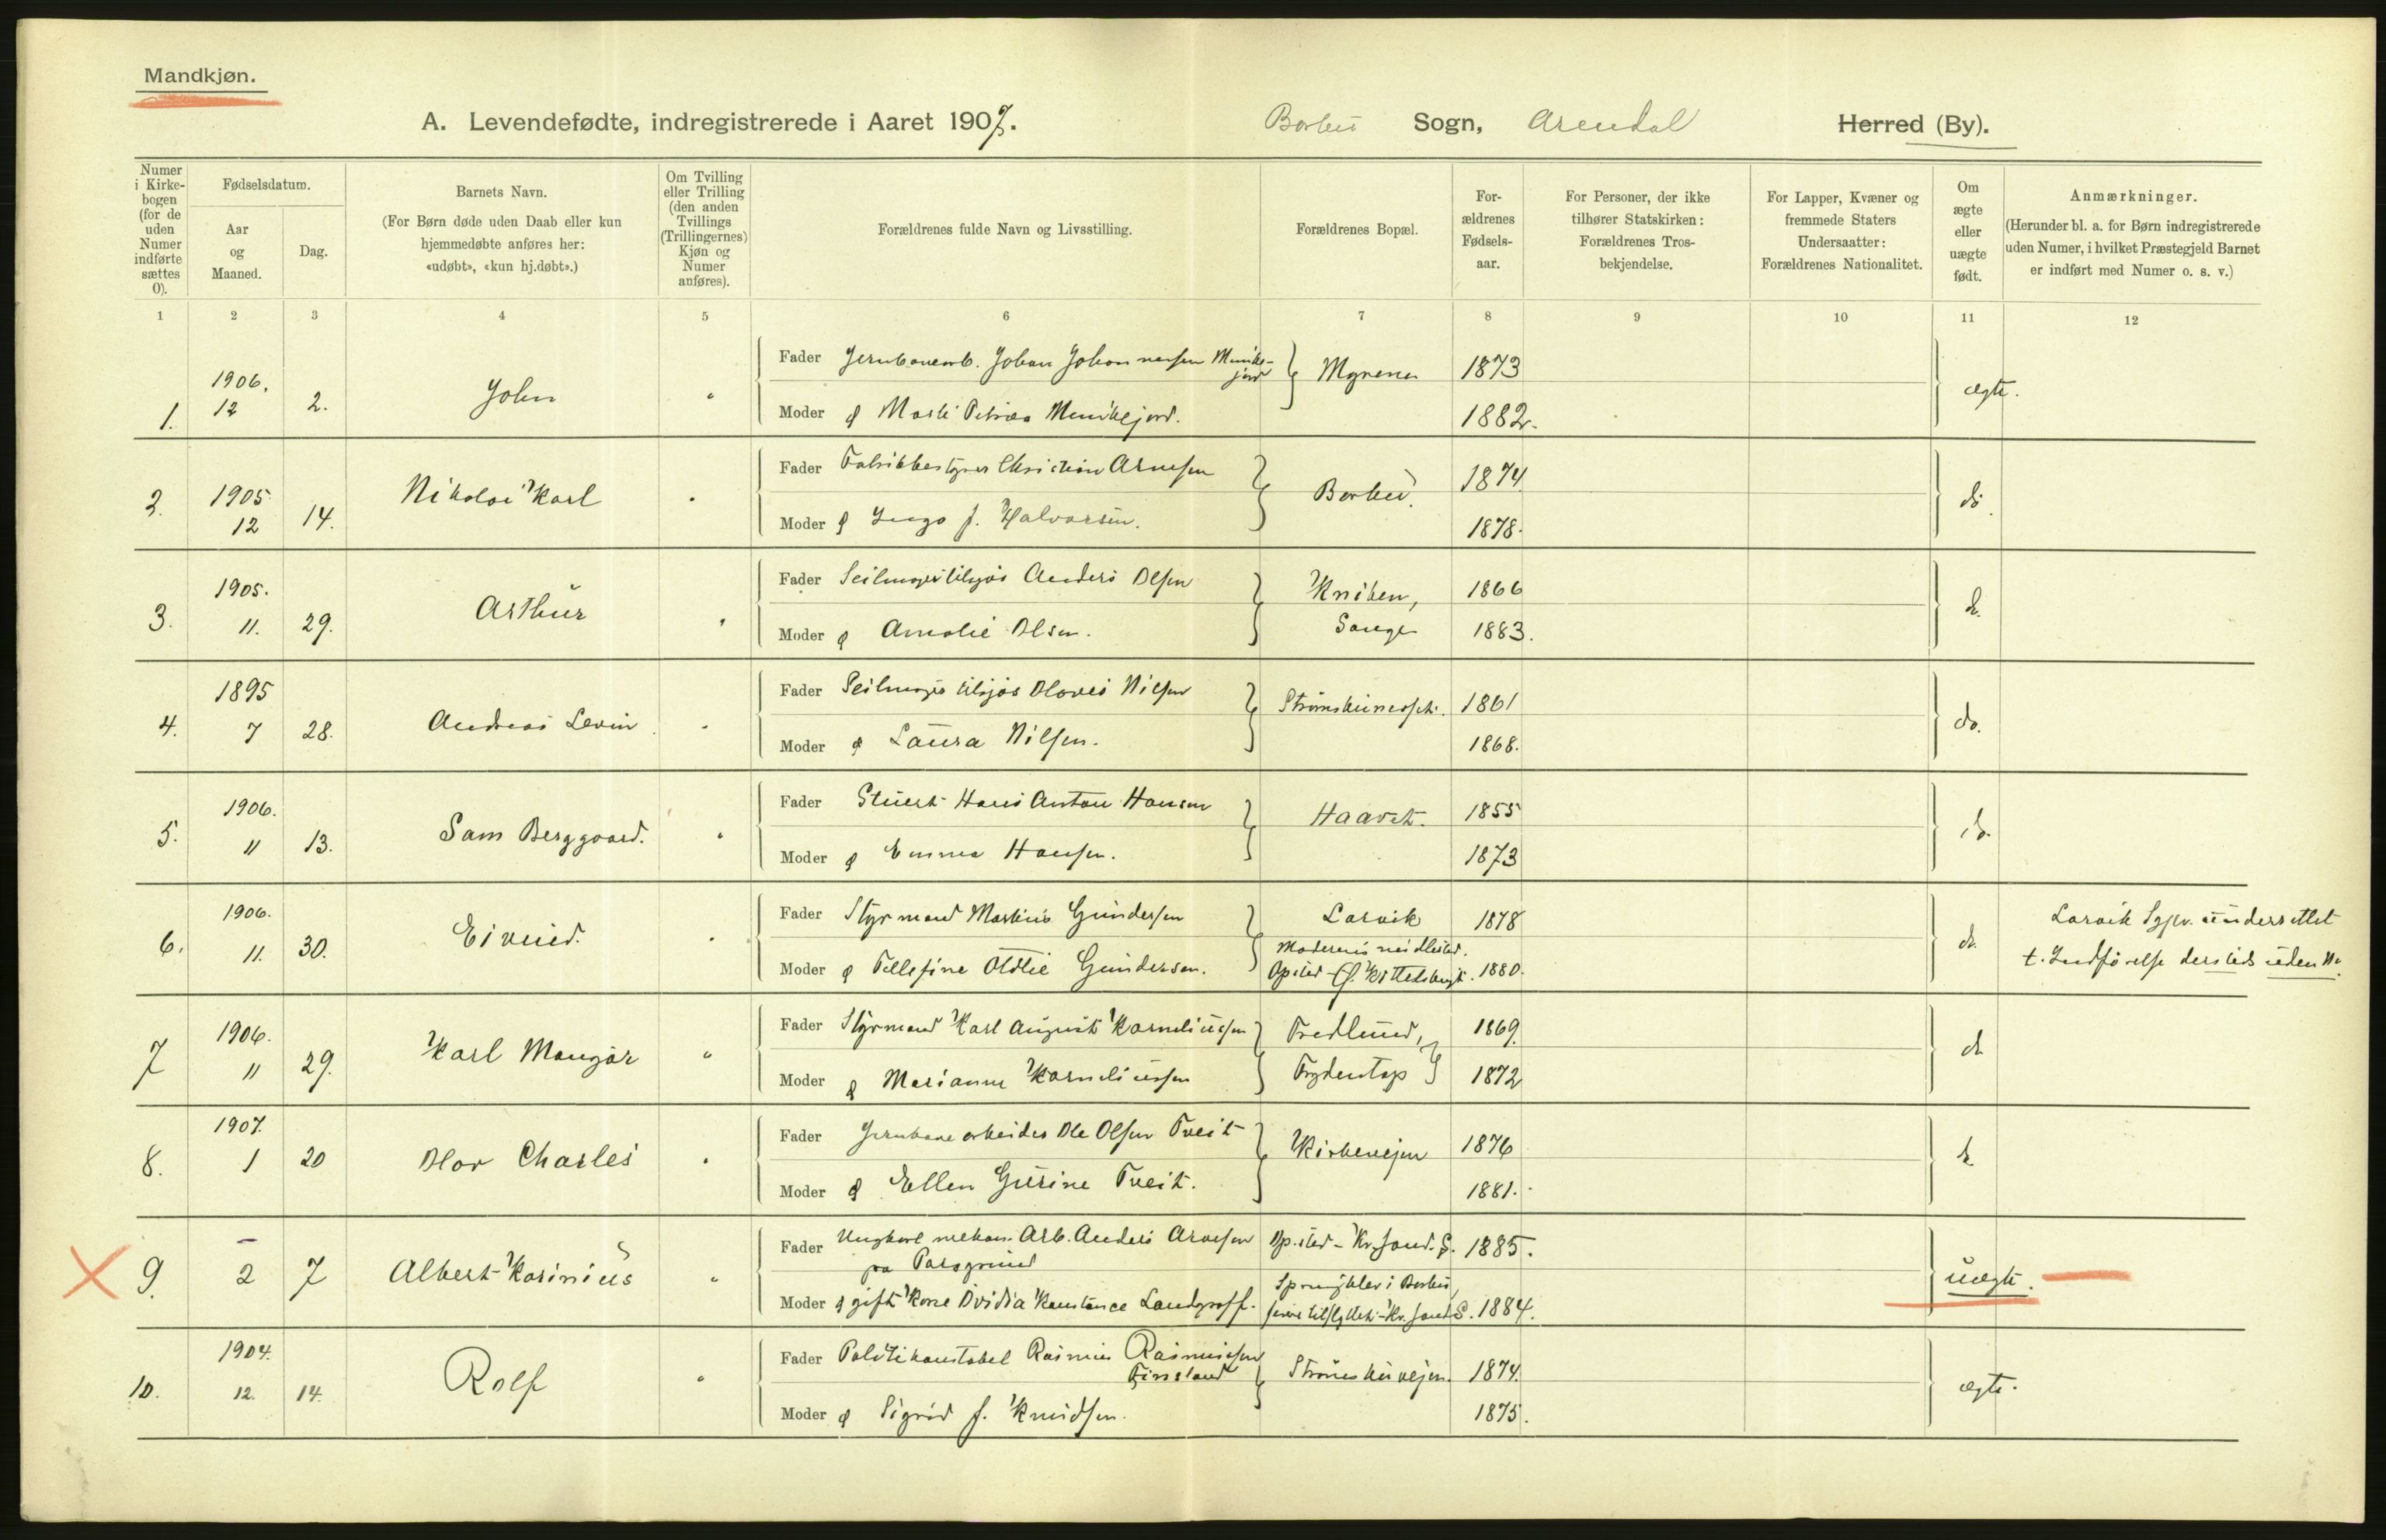 Mandkjøn.
A. Levendefødte, indregistrerede i Aaret 1907. Barbu Sogn, Arendal Herred (By).
Numer i Kirke-bogen (for de uden Numer indførte sættes 0).
Fødselsdatum.
Aar og Maaned.
Dag.
Barnets Navn.
(For Børn døde uden Daab eller kun
hjemmedøbte anføres her:
«udøbt», «kun hj.døbt».)
Om Tvilling eller Trilling (den anden Tvillings (Trillingernes) Kjøn og Numer anføres).
Forældrenes fulde Navn og Livsstilling.
Forældrenes Bopæl.
For-ældrenes Fødsels-aar.
For Personer, der ikke tilhører Statskirken: Forældrenes Tros-bekjendelse.
For Lapper, Kvæner og fremmede Staters Undersaatter: Forældrenes Nationalitet.
Om ægte eller uægte født.
Anmærkninger.
(Herunder bl. a. for Børn indregistrerede
uden Numer, i hvilket Præstegjeld Barnet
er indført med Numer o. s. v.)
1 2 3 4 5 6 7 8 9 10 11 12
1. 1906. 12 2. John " Fader Jernbanearb. Johan Johannessen Munkejord Myrene 1873 ægte.
Moder & Petrea Munkejord. 1882.
2. 1905 12 14. Nikolai Karl " Fader Christian Arnesen Barbu. 1874 do.
Moder & Inga f. Halvorsen. 1878.
3. 1905. 11. 29. Arthur " Fader Anders Olsen Kniben, 1866 do.
Moder & Amalie Olsen. Songe 1883.
4. 1895 7 28. Andreas Levin " Fader Nilsen 1861 do.
Moder & Laura Nilsen. 1868.
5. 1906. 11 13. Sam Berggaard. " Fader Stuert Hans Anton Hansen 1855 do.
Moder & Emma Hansen. 1873
6. 1906. 11. 30. Eivind. " Fader Styrmand Gundersen Larvik 1878 do. Larvik Sgpr. underrettet
Moder & Tellefine Gundersen. Moderens Opsted 1880. t. Indførelse dersteds uden No.
7 1906. 11 29. Karl " Fader Styrmand Karl August Korneliussen Fredlund, 1869. do
Moder & Marianne Korneliussen 1872
8. 1907. 1 20 Olav Charles " Fader Jernbanearbeider Ole Olsen Tveit Kirkeveien 1876 do
Moder & Ellen Gurine Tveit. 1881.
9. - 2 7 Albert Karinius " Fader Ungkarl mekan. Arb. Anders Arnesen Opsted - Kr.sand. S. 1885. uægte.
paa Porsgrund
Moder gift Kone Ovidia Konstance Landgraff. i Barbu, 1884.
10. 1904. 12. 14. Rolf " Fader Politikonstabel Rasmus Rasmussen 1874. ægte.
Finsland
Moder & Sigrid f. Knudsen. 1875.